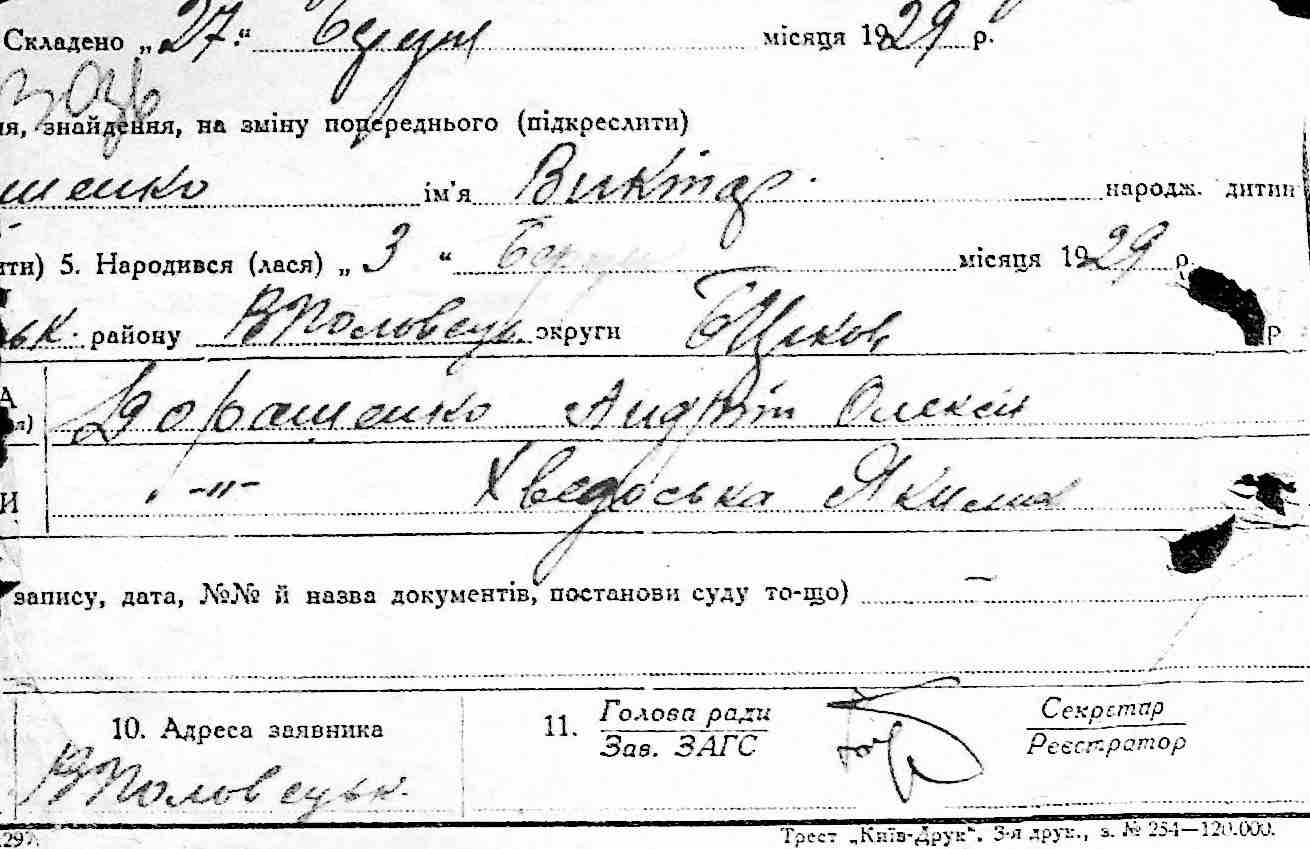 Складено „27“ Берузн місяця 1929 р.
ня, знайдення, на зміну попереднього (підкреслити)
шенко ім'я Виктар народж. дитин
ити) 5. Народився (лася) „3“ місяця 1929 р.
ьк. району ВПоловецьк. округи БЦеков Р
А Дорашенко Андрій Олексій
И -"- Хведоська Якимів
запису, дата, №№ й назва документів, постанови суду то-що) —
10. Адреса заявника 11. Голова ради Секретар
Зав. ЗАГС Реєстратор
ВПоловецьк.
297. Трест „Київ-Друк“. 3-я друк., з. № 254—120.000.